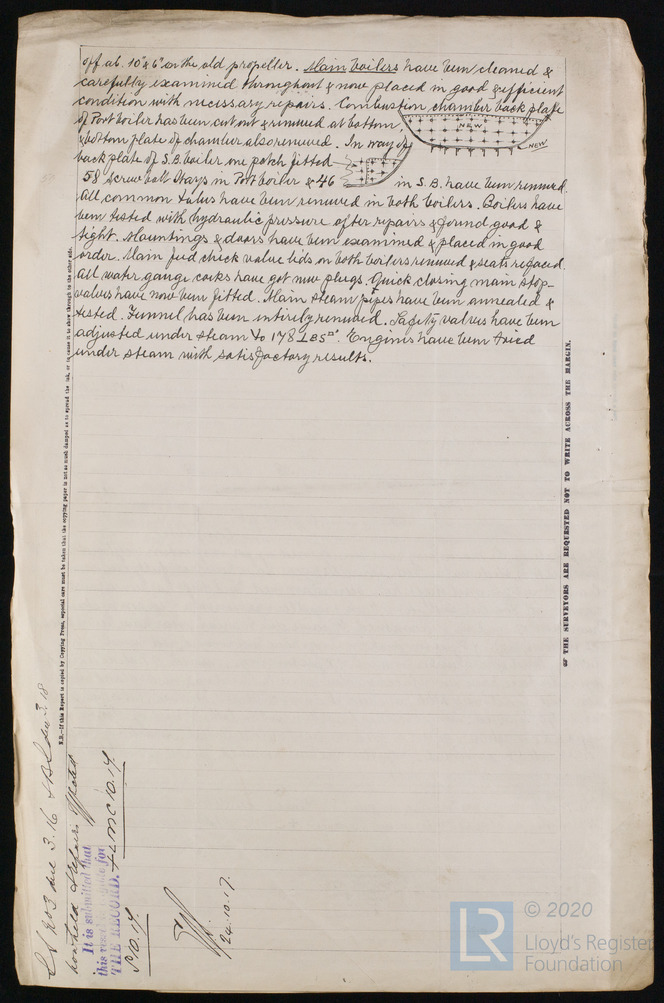 off ab. 10"x6" on the old propeller. Main boilers have been cleaned &
carefully examined throughout & now placed in good & efficient
condition with necessary repairs. Combustion chamber back plate
of Port boiler has been cut out & renewed at bottom,
& bottom plate of chamber also renewed. In way of
NEW
NEW
back plate of S.B. boiler one patch fitted
58 screw bolt stays in Port boiler & 46 in S.B. have been renewed.
All common tubes have been renewed in both boilers. Boilers have
been tested with hydraulic pressure after repairs & found good &
tight. Mountings & doors have been examined & placed in good
order. Main feed check valve lids on both boilers renewed & seats refaced.
All water gauge cocks have got new plugs. Quick closing main stop-
valves have now been fitted. Main steam pipes have been annealed &
tested. Funnel has been entirely renewed. Safety valves have been
adjusted under steam to 178 Lbs □". Engines have been tried
under steam with satisfactory results.
N.B.—If this Report is copied by Copying Press, especial care must be taken that the copying paper is not so much damped as to spread the ink, or to cause it to show through to the other side.
THE SURVEYORS ARE REQUESTED NOT TO WRITE ACROSS THE MARGIN.
due 3.16
3.18
It is submitted that
this
for
THE RECORD. + LMC 10.17
S 10.17
24.10.17.
LR
© 2020
Lloyd's Register
Foundation